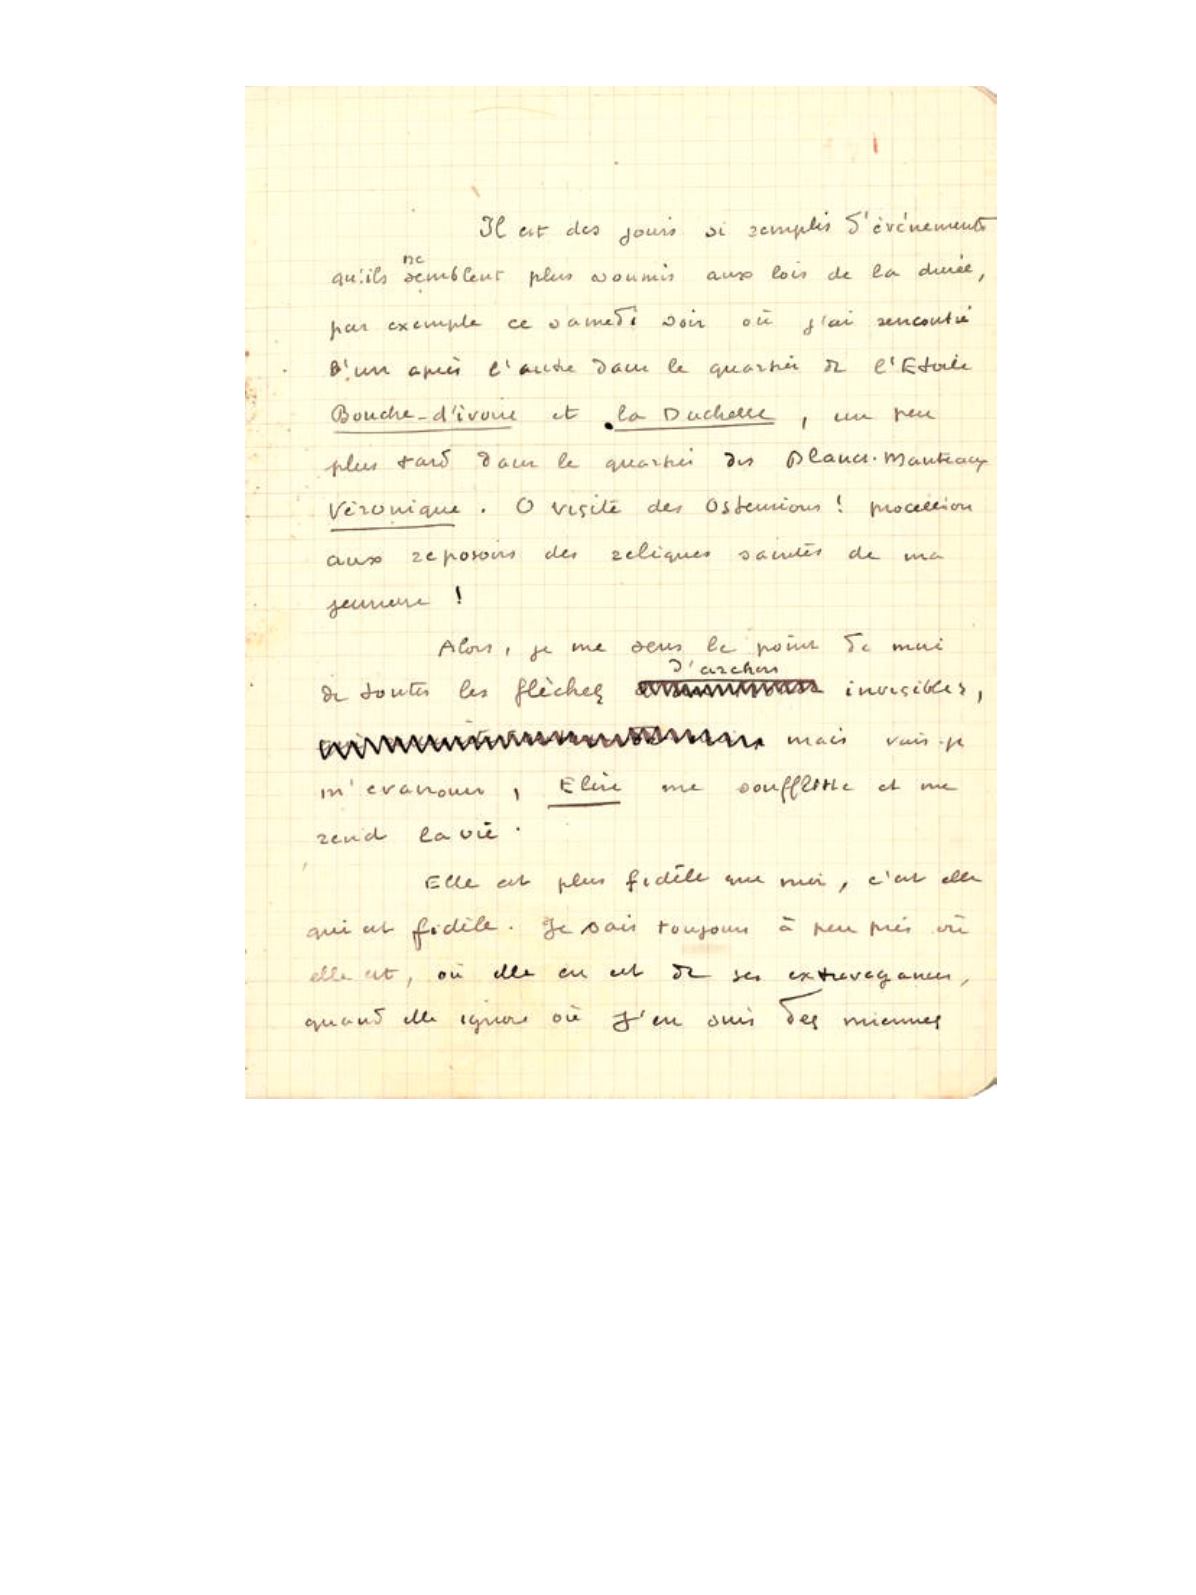 Il est des jours si remplis d'événements
qu'ils ne semblent plus soumis aux lois de la durée,
par exemple ce samedi soir où j'ai rencontré
l'un après l'autre dans le quartier de l'Etoile
Bouche-d'ivoire et la Duchesse, un peu
plus tard dans le quartier des Blancs-Manteaux
Véronique. O visite des Ostensions! procession
aux reposoirs des reliques saintes de ma
jeunesse!
Alors, je me sens le point de mire
de toutes les flèches d'archers invisibles,
mais vais-je
m'évanouir, Elise me soufflette et me
rend la vie.
Elle est plus fidèle que moi, c'est elle
qui est fidèle. Je sais toujours à peu près où
elle est, où elle en est de ses extravagances,
quand elle ignore où j'en suis des miennes